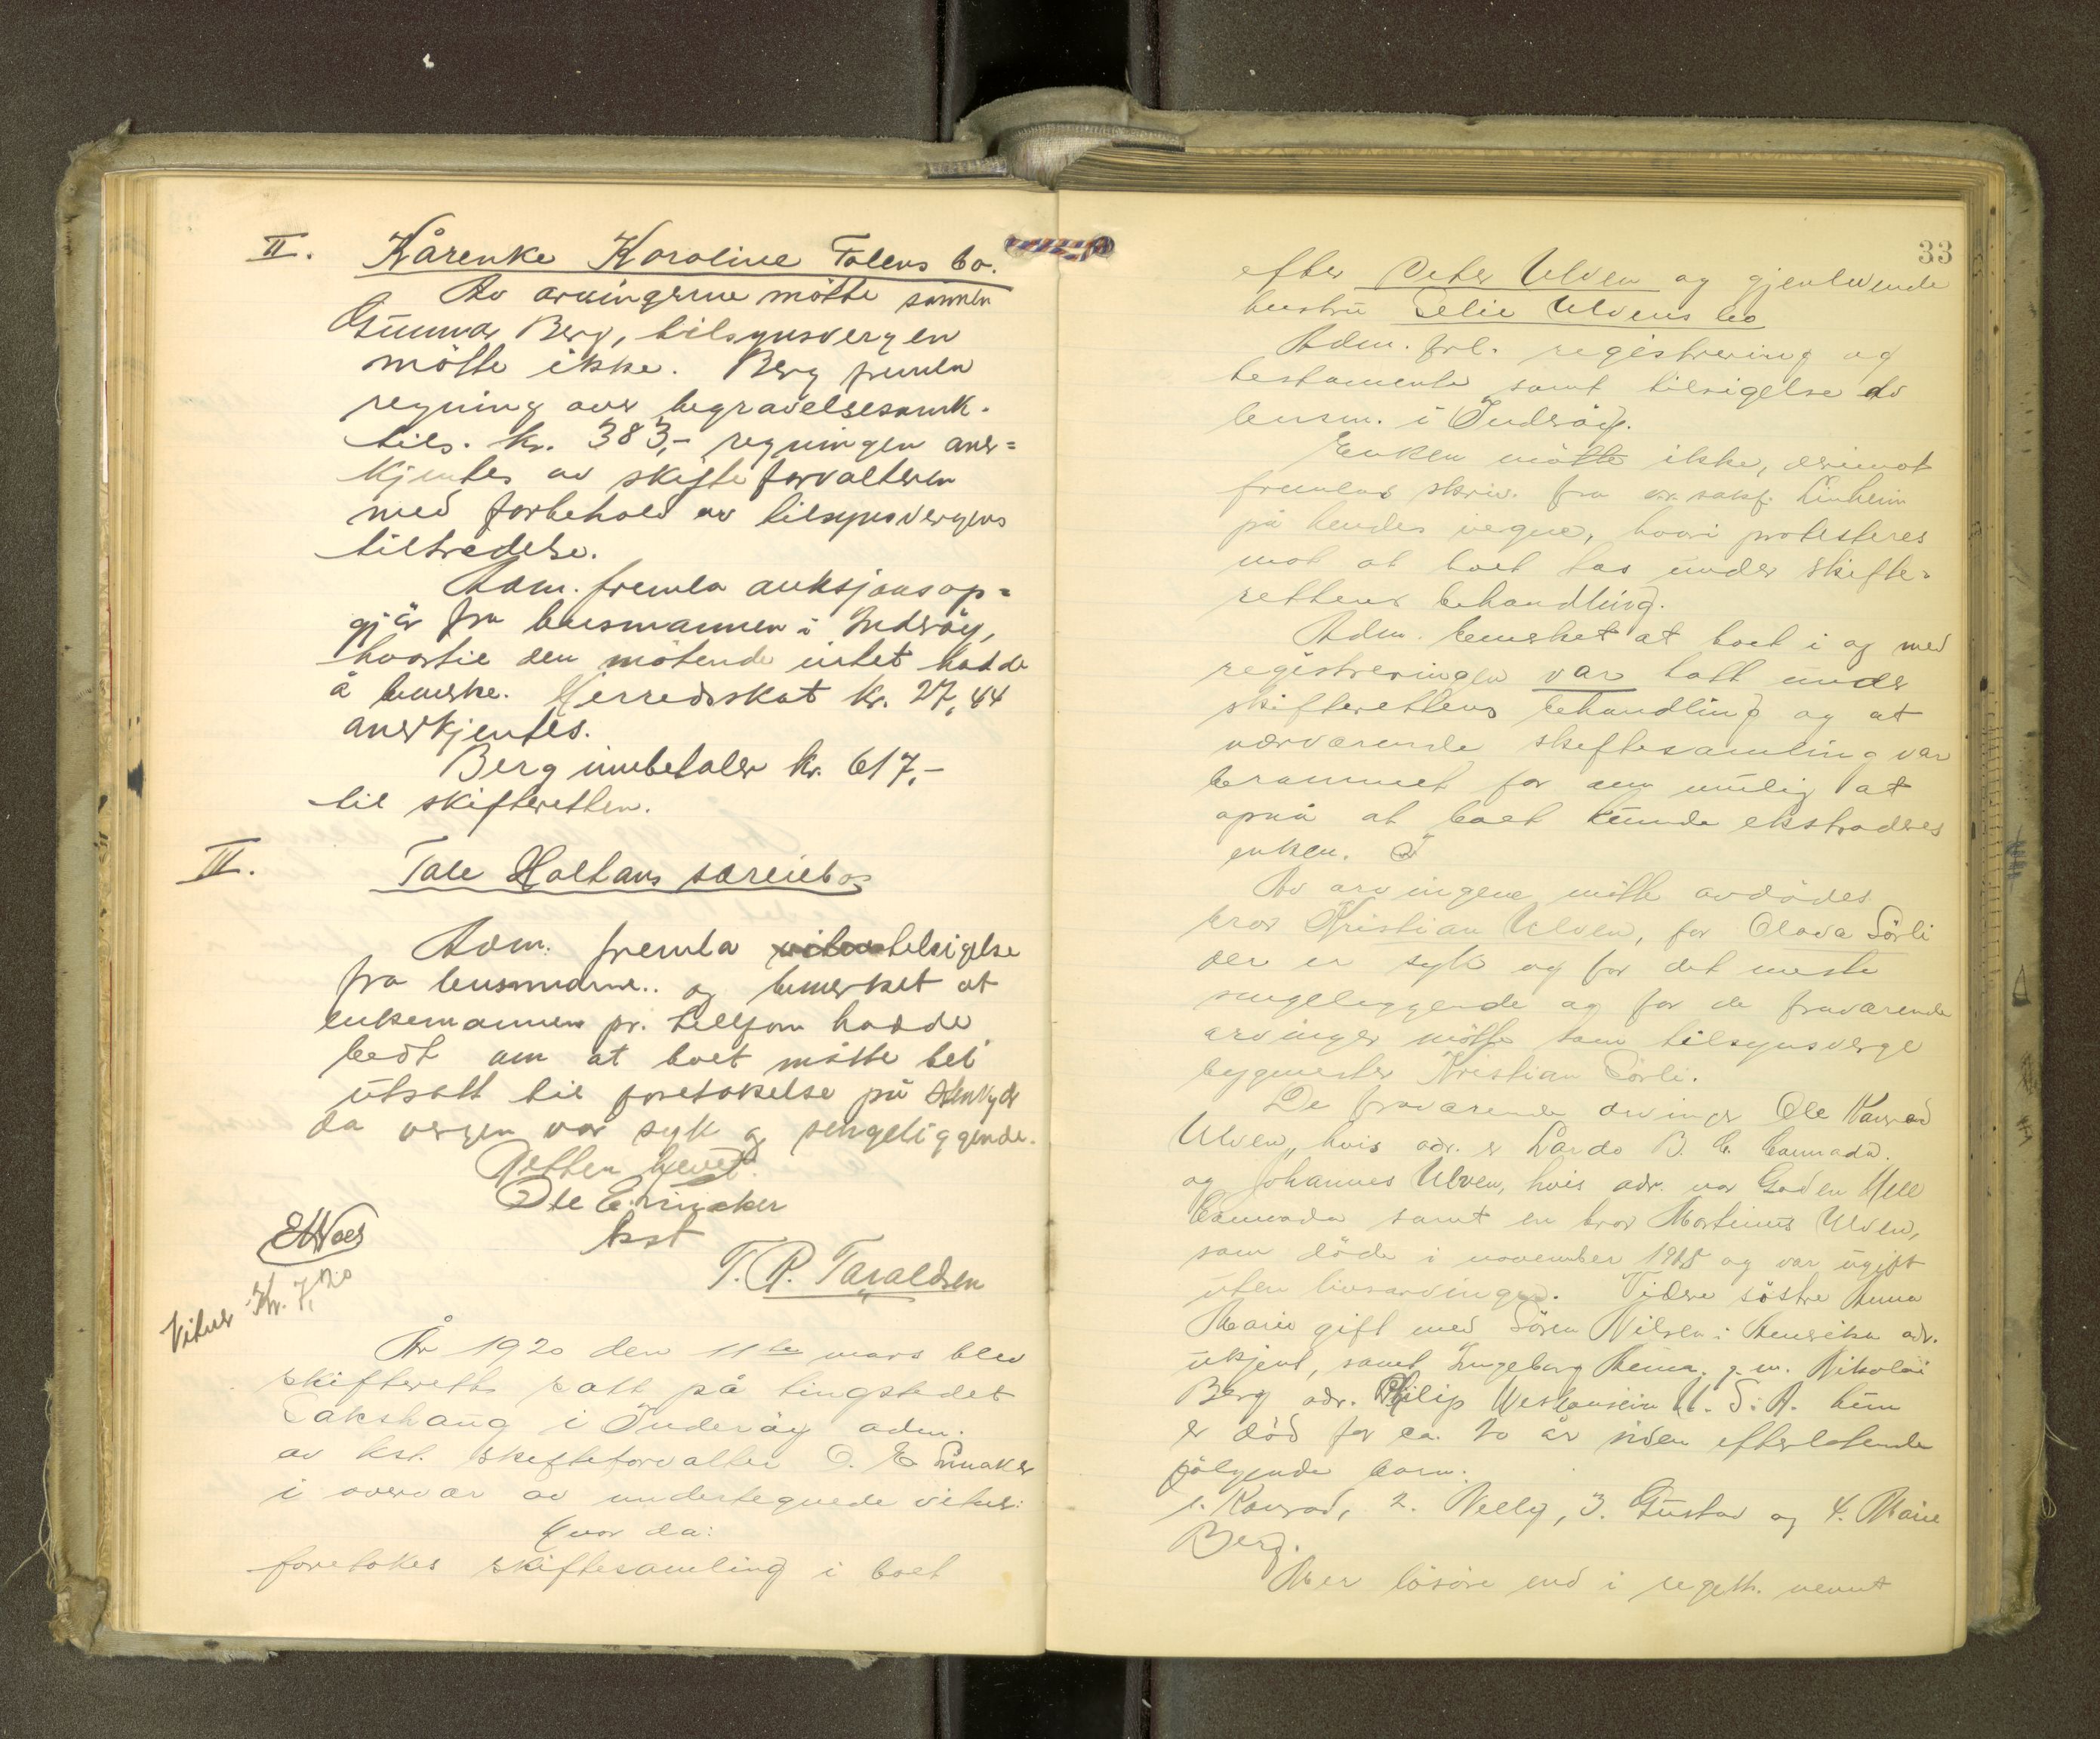 II. Kårenke Karoline Folens bo.
Av arvingerne møtte sønnen
Gunnar Berg, tilsynsvergen
møtte ikke. Berg fremla
regning over begravelsesomk.
tils. kr. 383,- regningen aner=
kjentes av skifteforvalteren
med forbehold av tilsynsvergens
tiltrædelse.
Adm. fremla auksjonsop=
gjør fra lensmannen i Inderøy,
hvortil den møtende intet hadde
å bemerke. Herredsskat kr. 27,44
anerkjentes.
Berg innbetaler kr. 617,-
til skifteretten.
III. Tale Haltans særeiebo
Adm. fremla tilsigelse
fra lensmanne.. og bemerket at
enkemannen pr. telefon hadde
bedt om at boet måtte bli
utsatt til foretakelse på
da vergen var syk og sengeliggende.
Retten hevet.
Ole E.
kst
T. R. Taraldsen
Vitner Kr. 7,20
År 1920 den 11te mars blev
skifterett satt på tingstedet
Sakshaug i Inderøy adm.
av kst. skifteforvalter O. E.
i overvær av undertegnede vitner:
Hvor da:
foretokes skiftesamling i boet
33
efter Peter Ulven og gjenlevende
hustru Selie Ulvens bo
Adm. frl. registrering og
testamente samt tilsigelse av
lensm. i Inderøy.
Enken møtte ikke, derimot
fremlas skriv. fra o.r.sakf. Linheim
på hendes vegne, hvori protesteres
mot at boet tas under skifte=
rettens behandling.
Adm. bemerket at boet i og med
registreringen var tatt under
skifterettens behandling og at
nærværende skiftesamling var
berammet for om mulig at
opnå at boet kunde ekstraderes
enken.
Av arvingene møtte avdødes
bror Kristian Ulven, for Olava Sørli
der er syk og for det meste
sengeliggende og for de fraværende
arvinger møtte som tilsynsverge
bygmester Kristian Sørli.
De fraværende arvinger Ole Konrad
Ulven, hvis adr. er Lardo B. C. Cannada.
og Johannes Ulven, hvis adr. var Goden Hill
Cannada samt en bror Martinus Ulven,
som døde i november 1915 og var ugift
uten livsarvinger. Videre søstre Anna
Marie gift med Sören Nilsen i Amerika adr.
ukjent, samt Ingeborg Anna, g. m. Nikolai
Berg adr. Philip U. S. A. hun
er død for ca. 20 år siden efterlatende
følgende barn:
1. Konrad, 2. Nelly, 3. Gustav og 4. Marie
Berg.
Mer løsøre end i regstr. nevnt